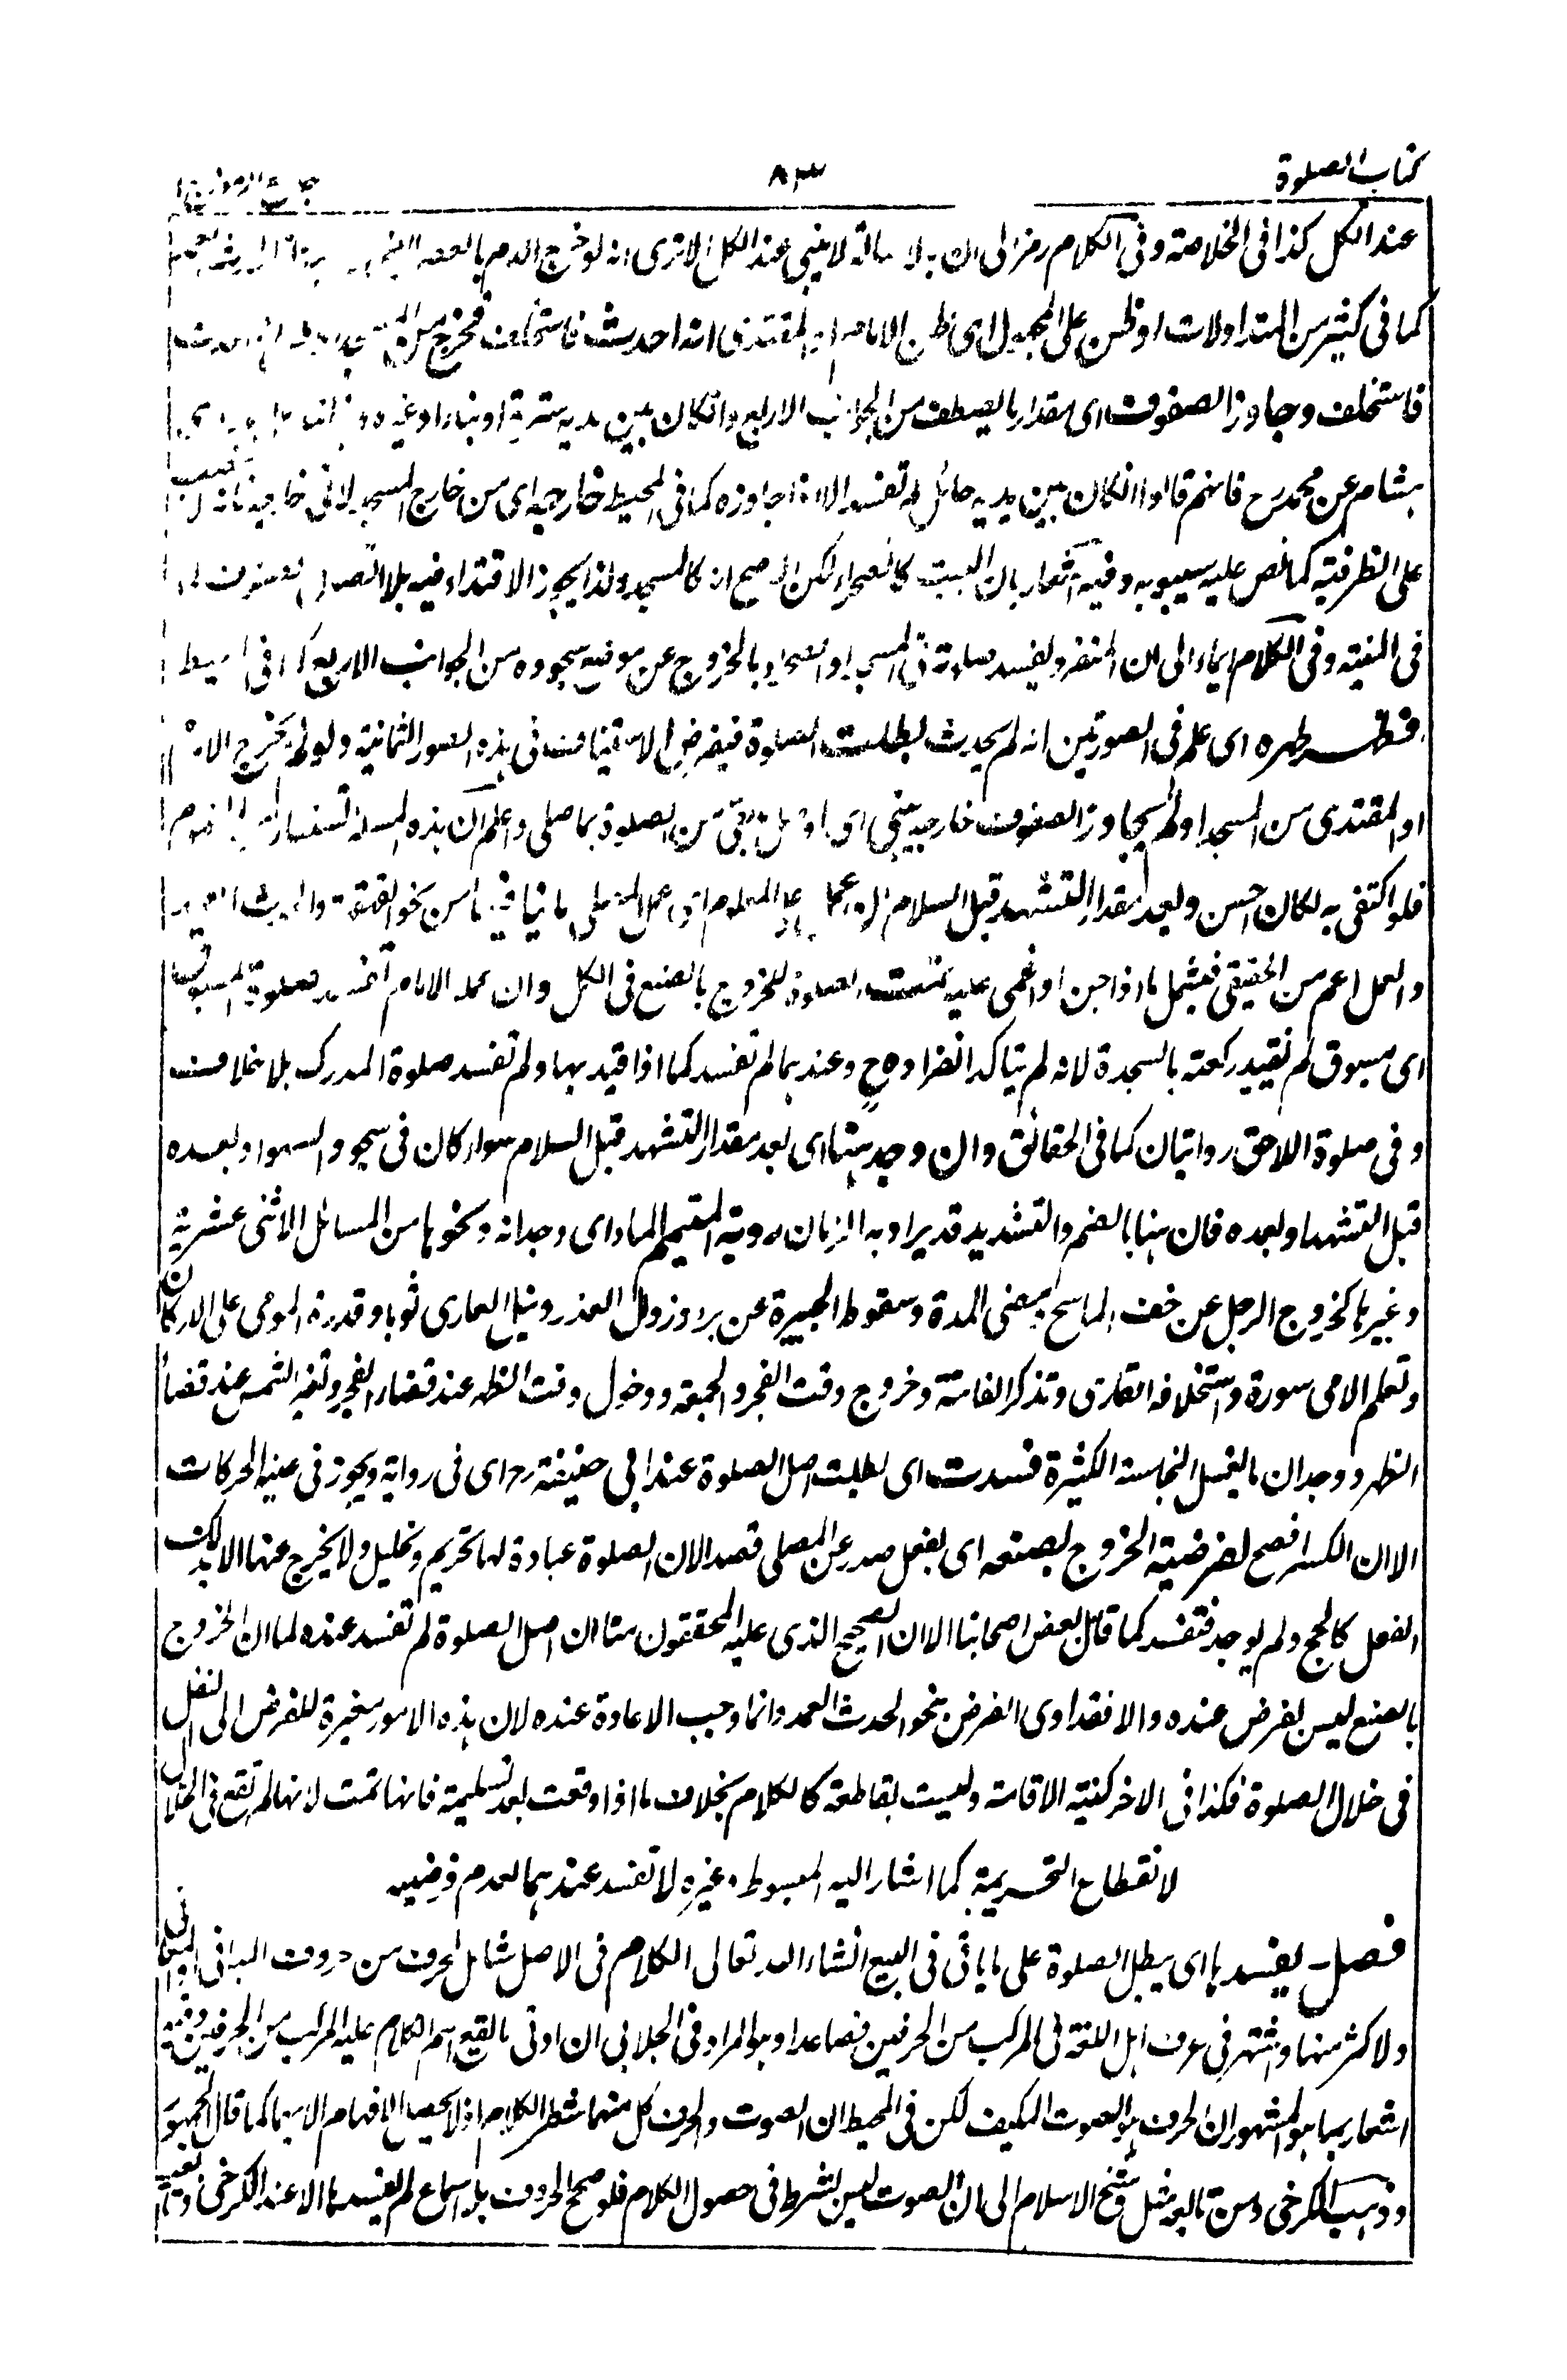 كتاب الصلوة
٨٣
جامع الرموز ج ١
عند الكل كذا فى الخلاصة وفى الكلام رمز الى ان لا يبنى عند الكل الا ترى انه لو خرج الدم
كما فى كثير من المتداولات او ظن على المجهول اى ظن الامام او المقتدى انه احدث فاستخلف فخرج من
فاستخلف وجاوز الصفوف اى مقدار ما يصطف من الجوانب الاربع وانكان بين يديه سترة او بناء او غيره
هشام عن محمد رح فانهم قالوا انكان بين يديه حائل لم تفسد الا اذا جاوزه كما فى المحيط خارجه اى من خارج المسجد لا فى خارجه فانه
على الظرفية كما نص عليه سيبويه وفيه اشعار بان البيت كالصحراء لكن الاصح انه كالمسجد ولذا يجوز الاقتداء فيه بلا اتصال الصفوف
فى المنية وفى الكلام ايماء الى ان المنفرد يفسد صلوته فى المسجد او الصحراء بالخروج عن موضع سجوده من الجوانب الاربع كما فى المحيط
فظهر طهره اى علم فى الصورتين انه لم يحدث بطلت الصلوة فيفرض الاستيناف فى هذه الصور الثمانية ولو لم يخرج الامام
او المقتدى من المسجد او لم يجاوز الصفوف خارجه يبنى اى ما بقى من الصلوة بما صلى واعلم ان هذه المسئلة
فلو اكتفى به لكان احسن وبعد مقدار التشهد قبل السلام لو عمل على المعلوم اى عمل المصلى ما ينافيها من نحو القهقهة والحدث
والعمل اعم من الحقيقى فيشمل ما اذا جن او اغمى عليه تمت الصلوة للخروج بالصنع فى الكل وان عمله الامام تفسد صلوة المسبوق
اى مسبوق لم يقيد ركعته بالسجدة لانه لم يتاكد انفراده ح وعندهما لم تفسد كما اذا قيد بها ولم تفسد صلوة المدرك بلا خلاف
وفى صلوة اللاحق روايتان كما فى الحقائق وان وجد هنا اى بعد مقدار التشهد قبل السلام سواء كان فى سجود السهو او بعده
قبل التشهد او بعده فان هنا بالضم والتشديد قد يراد به الزمان رؤية المتيمم الماء اى وجدانه ونحوها من المسائل الاثنى عشرية
وغيرها كخروج الرجل عن خف الماسح بمضى المدة وسقوط الجبيرة عن برء وزوال العذر ونيل العارى ثوبا وقدرة المومى على الاركان
وتعلم الامى سورة واستخلافه القارى وتذكر الفائتة وخروج وقت الفجر والجمعة ودخول وقت الظهر عند قضاء الفجر وتغير الشمس عند قضاء
الظهر ووجدان ما يغسل النجاسة الكثيرة فسدت اى بطلت اصل الصلوة عند ابى حنيفة رح اى فى رواية ويجوز فى عينه الحركات
الا ان الكسر افصح لفرضية الخروج بصنعه اى بفعل صدر عن المصلى قصدا لان الصلوة عبادة لها تحريم وتحليل ولا يخرج عنها الا بذلك
الفعل كالحج ولم يوجد فتفسد كما قال بعض اصحابنا الا ان الصحيح الذى عليه المحققون منا ان اصل الصلوة لم تفسد عنده لما ان الخروج
بالصنع ليس بفرض عنده والا فقد ادى الفرض بنحو الحدث العمد وانما وجب الاعادة عنده لان هذه الامور مغيرة للفرض الى النفل
فى خلال الصلوة فكذا فى الاخر كنية الاقامة وليست بقاطعة كالكلام بخلاف ما اذا وقعت بعد تسليمة فانها تمت لانها لم تقع فى الخلال
لانقطاع التحريمة كما اشار اليه المبسوط وغيره لا تفسد عندهما لعدم فرضيته
فصل يفسدها اى يبطل الصلوة على ما ياتى فى البيع انشاء الله تعالى الكلام فى الاصل شامل لحرف من حروف المبانى
ولاكثر منها واشتهر فى عرف اهل اللغة فى المركب من الحرفين فصاعدا وهو المراد وفى الجلابى ان ادنى ما يقع اسم الكلام عليه المركب من الحرفين وفيه
اشعار بما هو المشهور ان الحرف هو الصوت المكيف لكن فى المحيط ان الصوت والحرف كل منهما شطر الكلام اذ لا يحصل الافهام الا بهما كما قال الجمهور
وذهب الكرخى ومن تابعه مثل شيخ الاسلام الى ان الصوت ليس بشرط فى حصول الكلام فلو صحح الحروف بلا اسماع لم يفسدها الا عند الكرخى